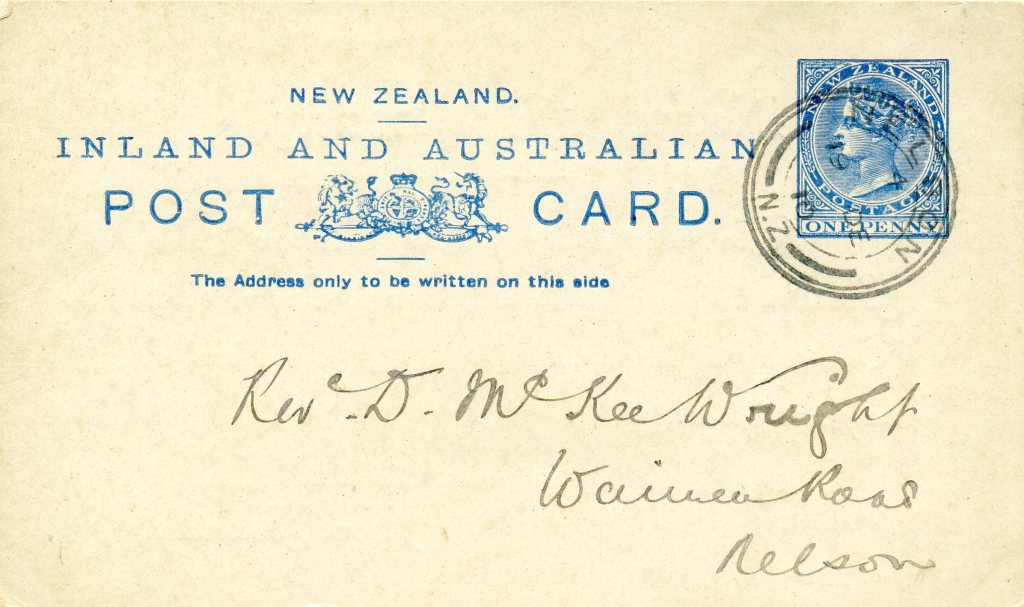 NEW ZEALAND.
INLAND AND AUSTRALIAN
POST CARD.
The Address only to be written on this side
NEW ZEALAND
POSTAGE
ONE PENNY
N.Z.
Rev. D. McKee Wright
Waimea Road
Nelson